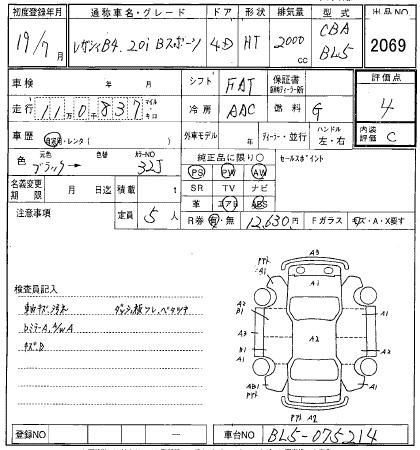 初度登録年月 通称車名・グレード ドア 形状 排気量 型式 出品NO
19/7月 レガシィB4 2.0i Bスポーツ 4D HT 2000cc CBA BL5 2069
車検 年 月 シフト FAT 保証書 評価点
4
走行 110,837 マイル キロ 冷房 AAC 燃料 G
車歴 自家用・レンタ( ) 外車モデル 年 ディーラー・並行 ハンドル 左・右 内装評価 C
色 元色 ブラック→ 色替 カラーNO 32J
純正品に限り○ セールスポイント
PS PW AW
名義変更期限 月 日迄 積載 t
SR TV ナビ
注意事項 定員 5人
革 エアB ABS
R券 有・無 12,630円 Fガラス キズ・A・X要す
検査員記入
ダッシュ板フレ、ベタツキ
キズ、B
A3
A1
A2
B1
A1
A2
B1
A1
A1
AB1
A1
A2
登録NO 車台NO BL5-075214